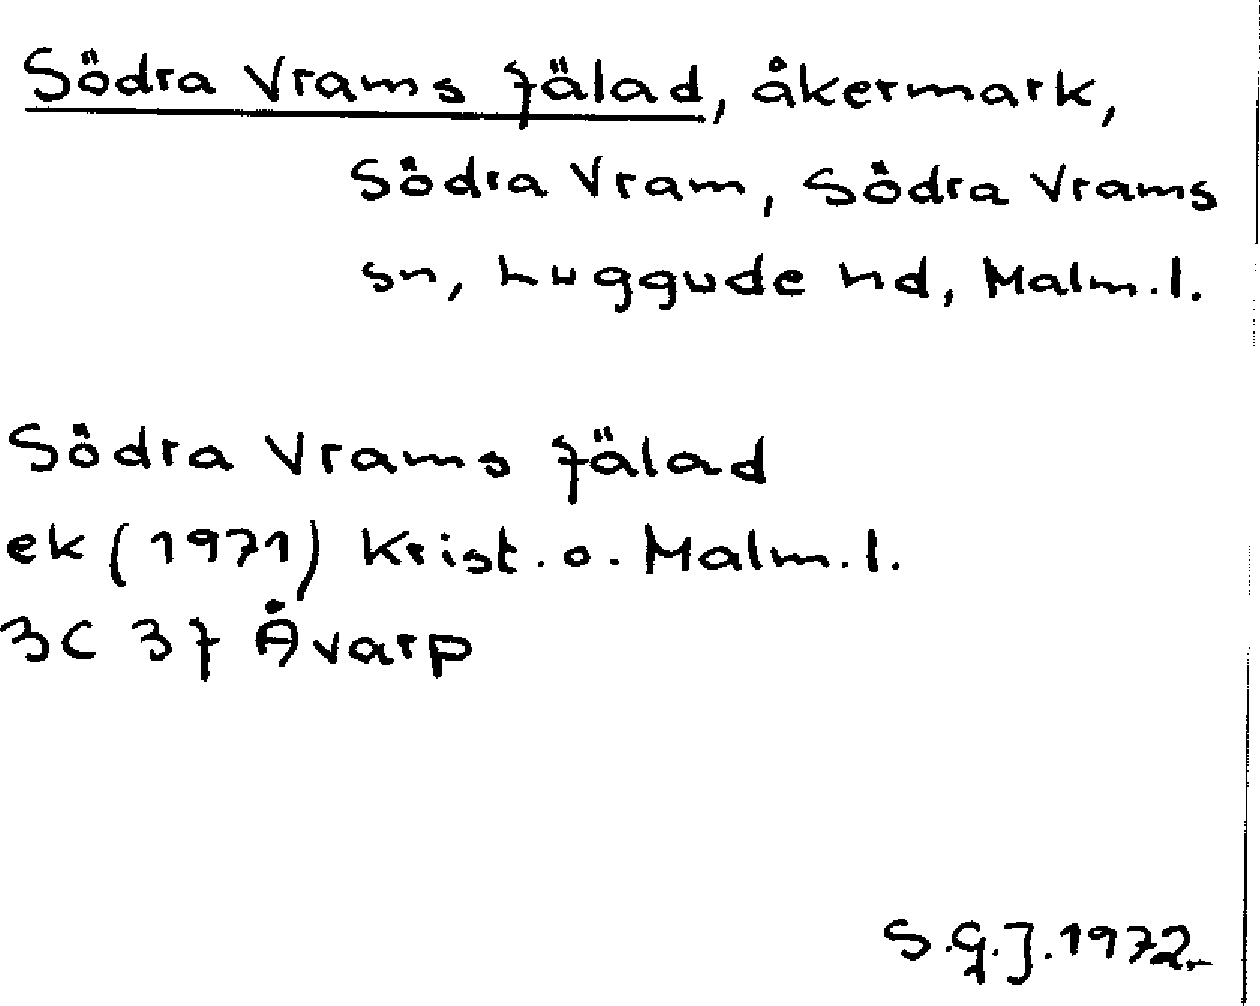 Södra Vrams fälad, åkermark,
Södra Vram, Södra Vrams
sn, Luggude hd, Malm.l.
Södra Vrams fälad
ek (1971) Krist. o. Malm.l.
3C 3f Åvarp
S.G.J. 1972.